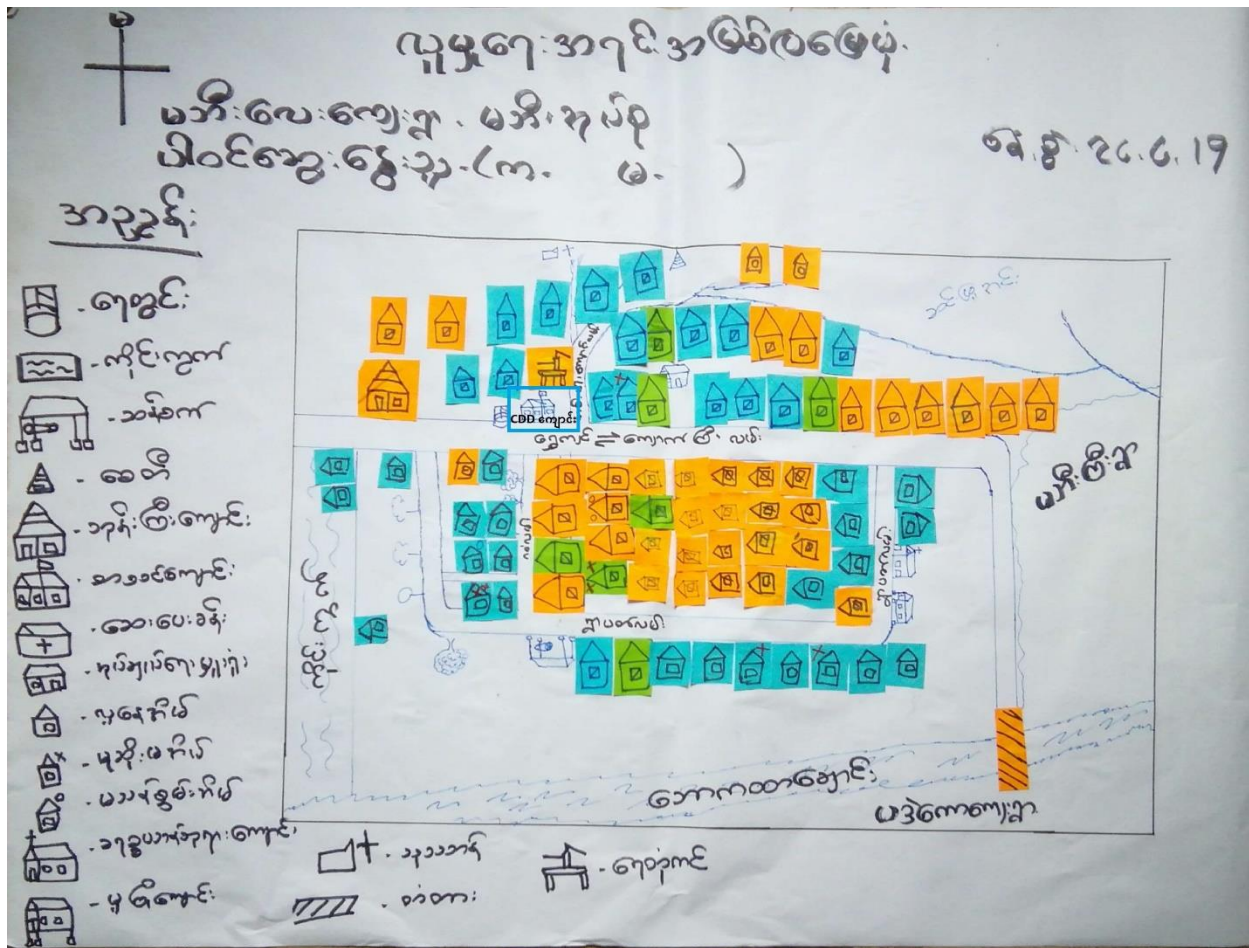 မ
လူမှုရေးအရင်းအမြစ်ပြမြေပုံ
မအီးလေးကျေးရွာ . မအီးအုပ်စု
ပါဝင်ဆွေးနွေးသူ - (က. မ. )
နေ့စွဲ . ၂၄.၄.19
အညွှန်း
- ရေတွင်း
- ကိုင်းကွက်
- ဆန်စက်
- စေတီ
- ဘုန်းကြီးကျောင်း
- စာသင်ကျောင်း
- ဆေးပေးခန်း
- အုပ်ချုပ်ရေးမှူးရုံး
- လူနေအိမ်
- မုဆိုးမအိမ်
- မသန်စွမ်းအိမ်
- ခရစ်ယာန်ဘုရားကျောင်း
- မူကြိုကျောင်း
- သုသာန်
- တံတား
- ရေတိုင်ကီ
CDD ကျောင်း
ရွှေကျင် ⇌ ကျောက်ကြီး လမ်း
မအီးကြီးရွာ
ရွာပတ်လမ်း
ဘောကထာချောင်း